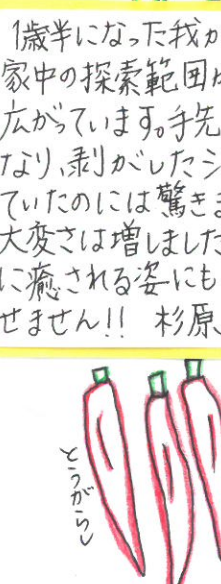 1歳半になった我が
家中の探索範囲が
広がっています。手先
なり、剥がしたシ
ていたのには驚きま
大変さは増しました
に癒される姿にも
せません!! 杉原
とうがらし